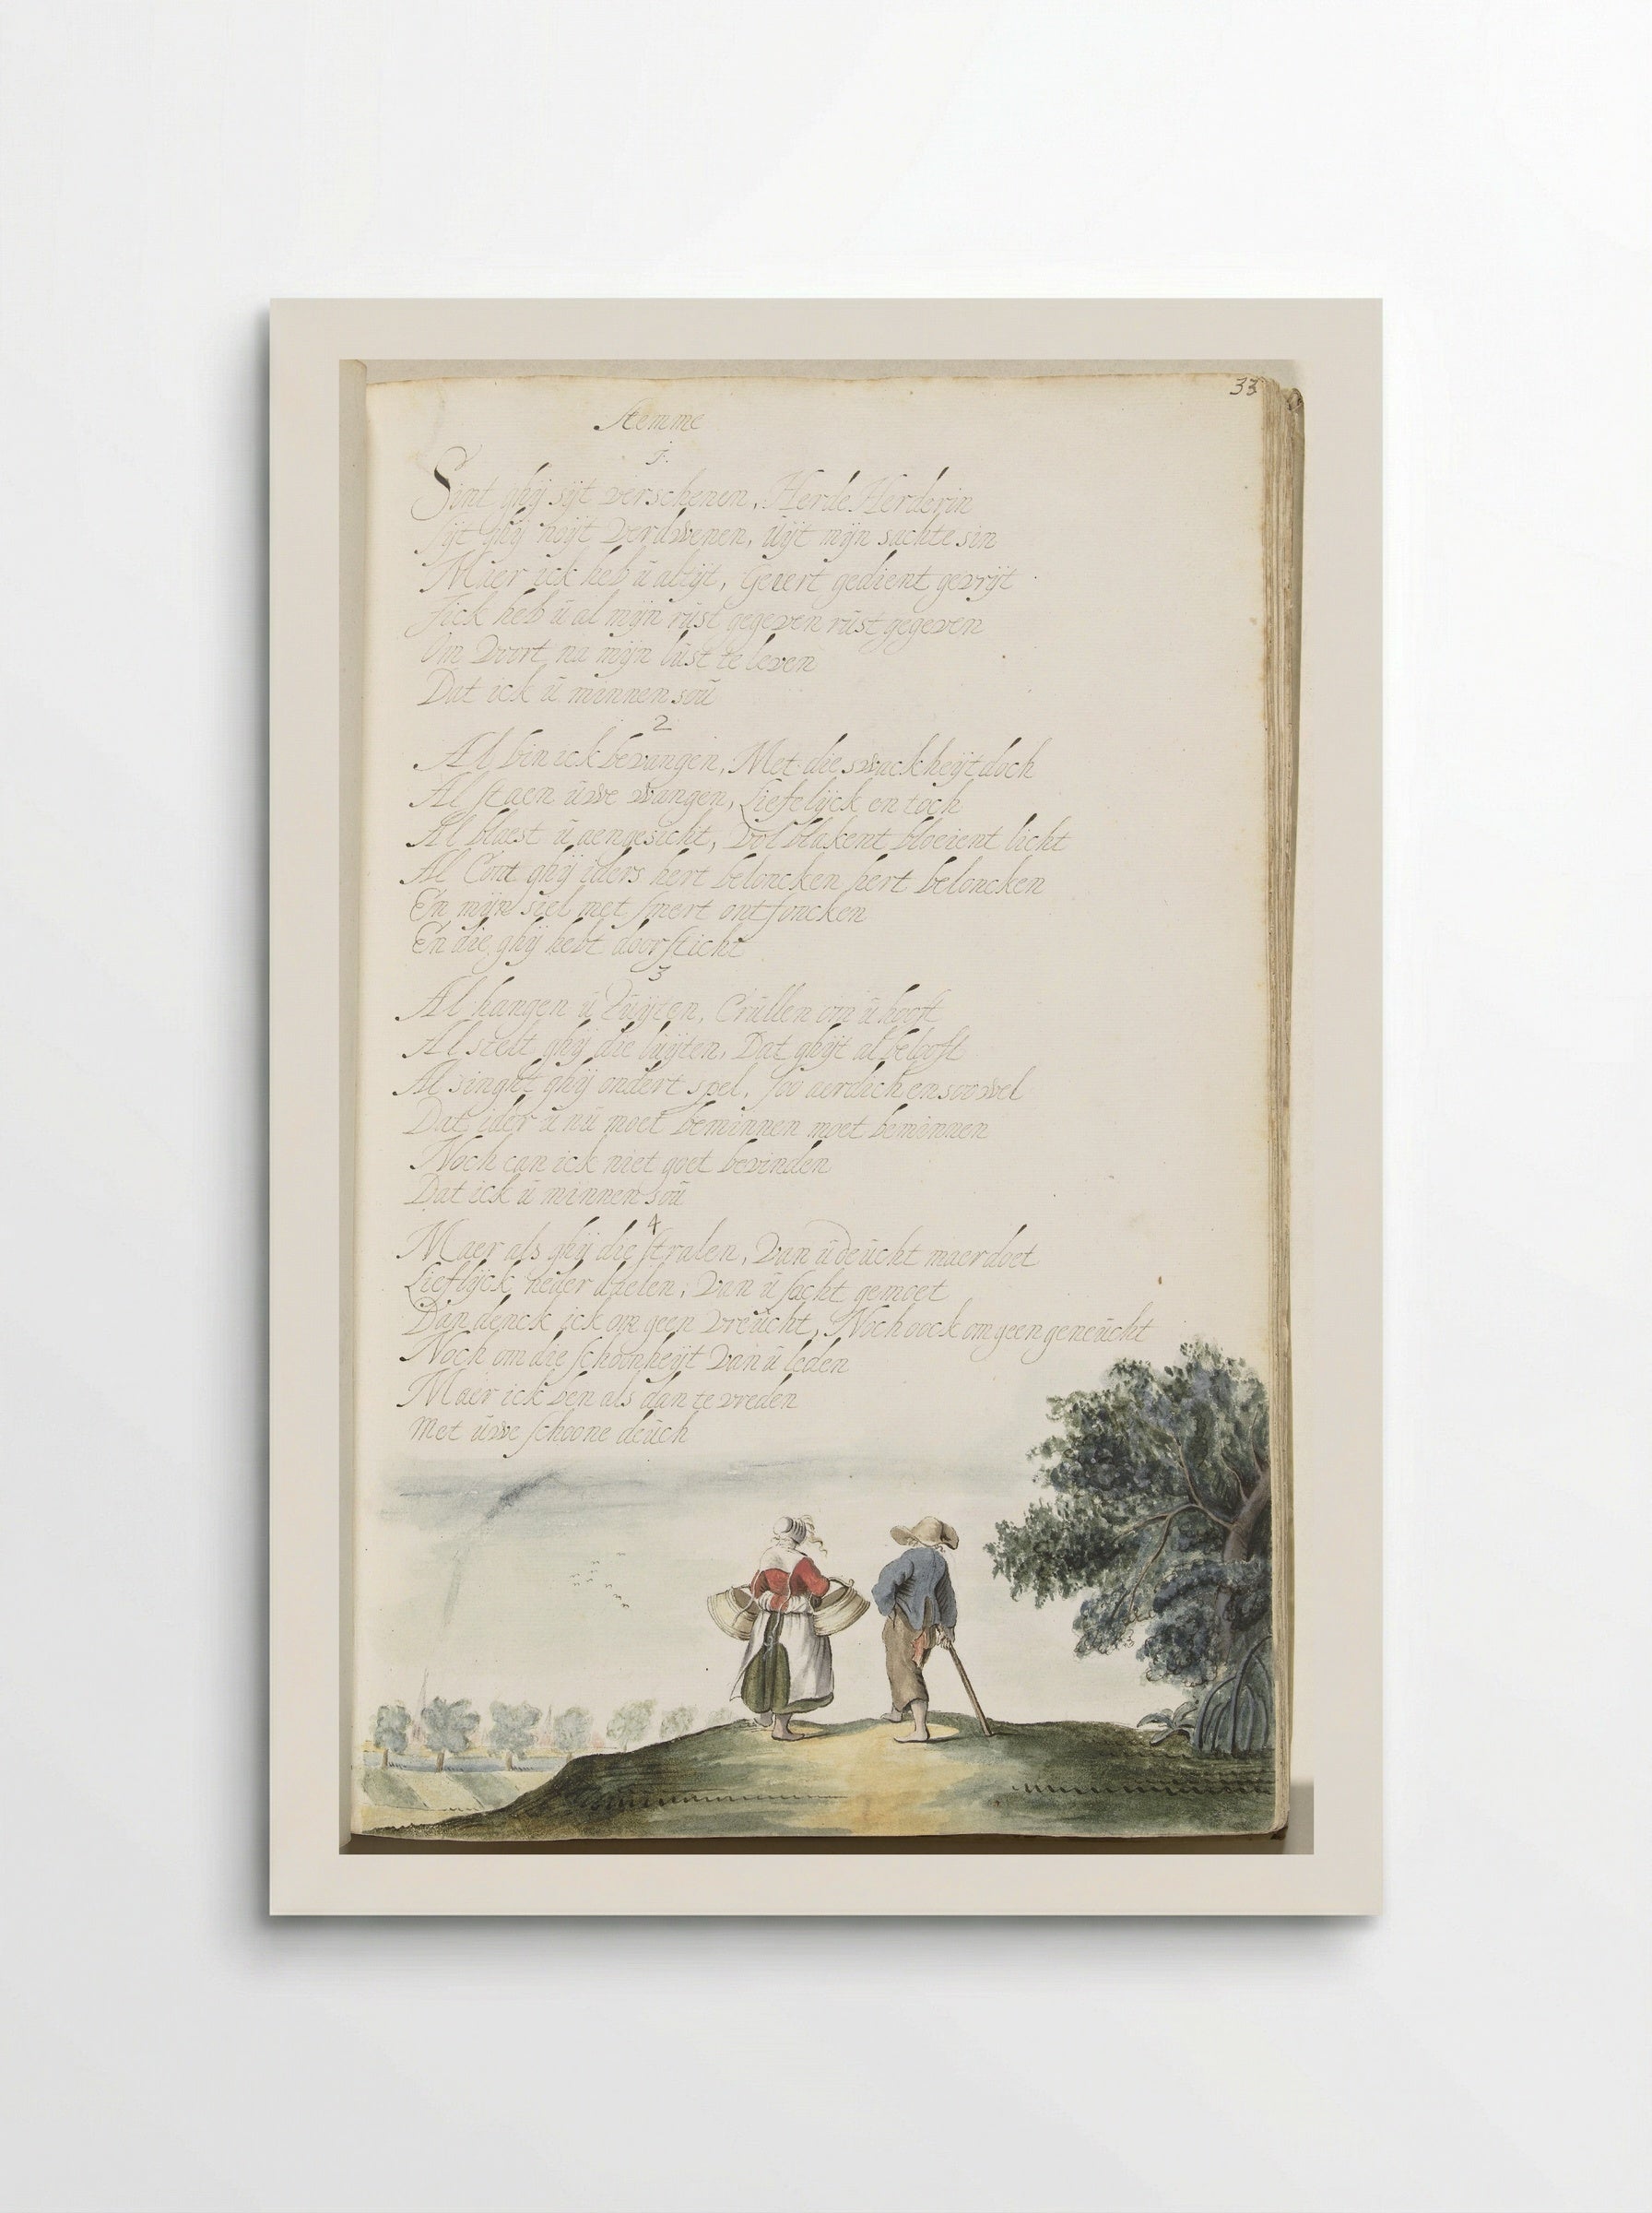 33
Stemme
1.
Sint ghij sijt verschenen, Herde Herderin
Sijt ghij noijt verdwenen, uijt mijn sachte sin
Maer ick heb ü altijt, Geeert gedient gevrijt
Jick heb ü al mijn rüst gegeven rüst gegeven
Om voort na mijn lüst te leven
Dat ick ü minnen soü
2
Al bin ick bevangen, Met die swackheijt doch
Al staen üwe wangen, Liefelijck en toch
Al blaest ü aengesicht, vol blakent bloeient licht
Al Cont ghij iders hert beloncken hert beloncken
En mijn siel met smert ontfoncken
En die ghij hebt doorsticht
3
Al hangen ü tüijten, Crüllen om ü hooft
Al stelt ghij die lüijten, Dat ghijt al belooft
Al singht ghij ondert spel, soo aerdich en soo wel
Dat ider ü nü moet beminnen moet beminnen
Noch can ick niet goet bevinden
Dat ick ü minnen soü
4
Maer als ghij die stralen, van ü deücht maer doet
Lieflijck neder daelen, van ü sacht gemoet
Dan denck ick om geen vreücht, Noch oock om geen geneücht
Noch om die schoonheijt van ü leden
Maer ick ben als dan te vreden
Met üwe schoone deüch